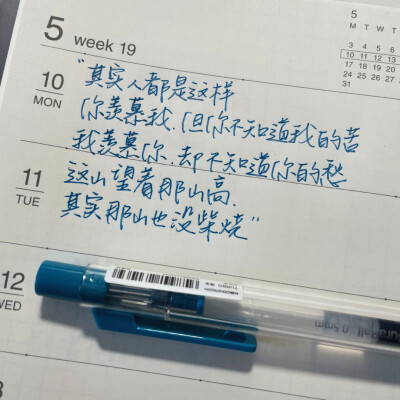 5 week 19
5
M T W T F
3 4 5 6
10 11 12 13
17 18 19 20
24 25 26 27
31
10
MON
“其实人都是这样
你羡慕我,但你不知道我的苦
我羡慕你,却不知道你的愁
11
TUE
这山望着那山高.
其实那山也没柴烧”
12
WED
0.5mm